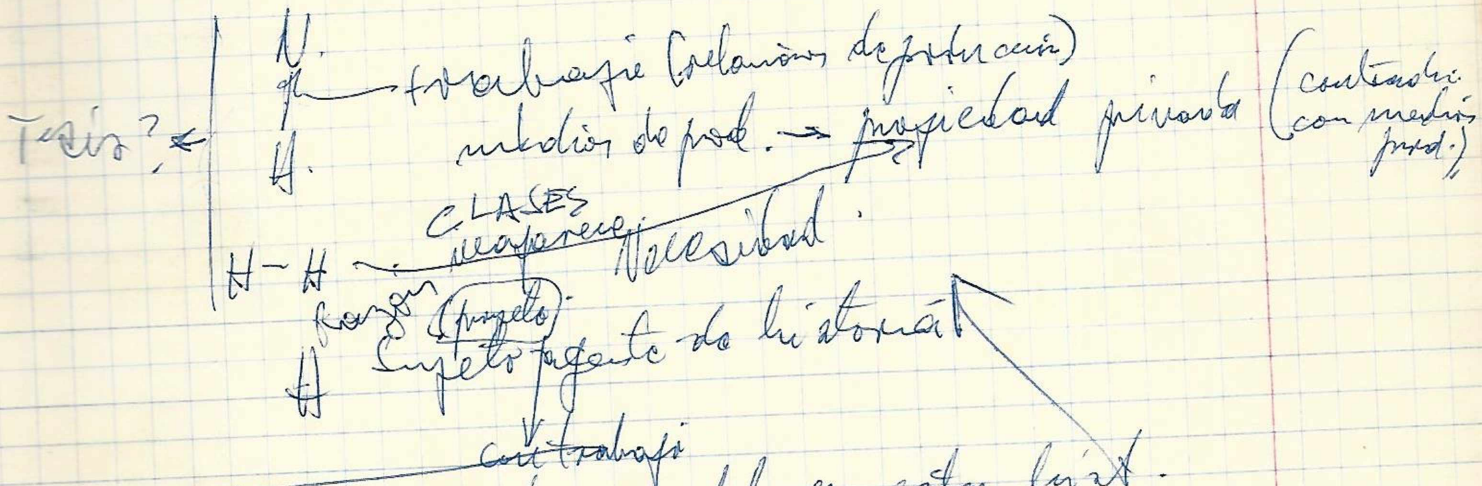 N.
trabajo (relaciones de producción)
Tesis?
H.
medios de prod. → propiedad privada (contradi.
con medios
prod.)
CLASES
reaparece
H - H
Necesidad.
Razón
(proyeto)
H Sujeto agente de historia
con trabajo
hist.